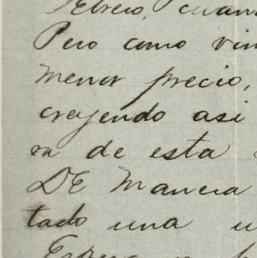 Febrero, cuan
Pero como vin
menor precio,
creyendo asi
ra de esta
DE Manera
tado una u